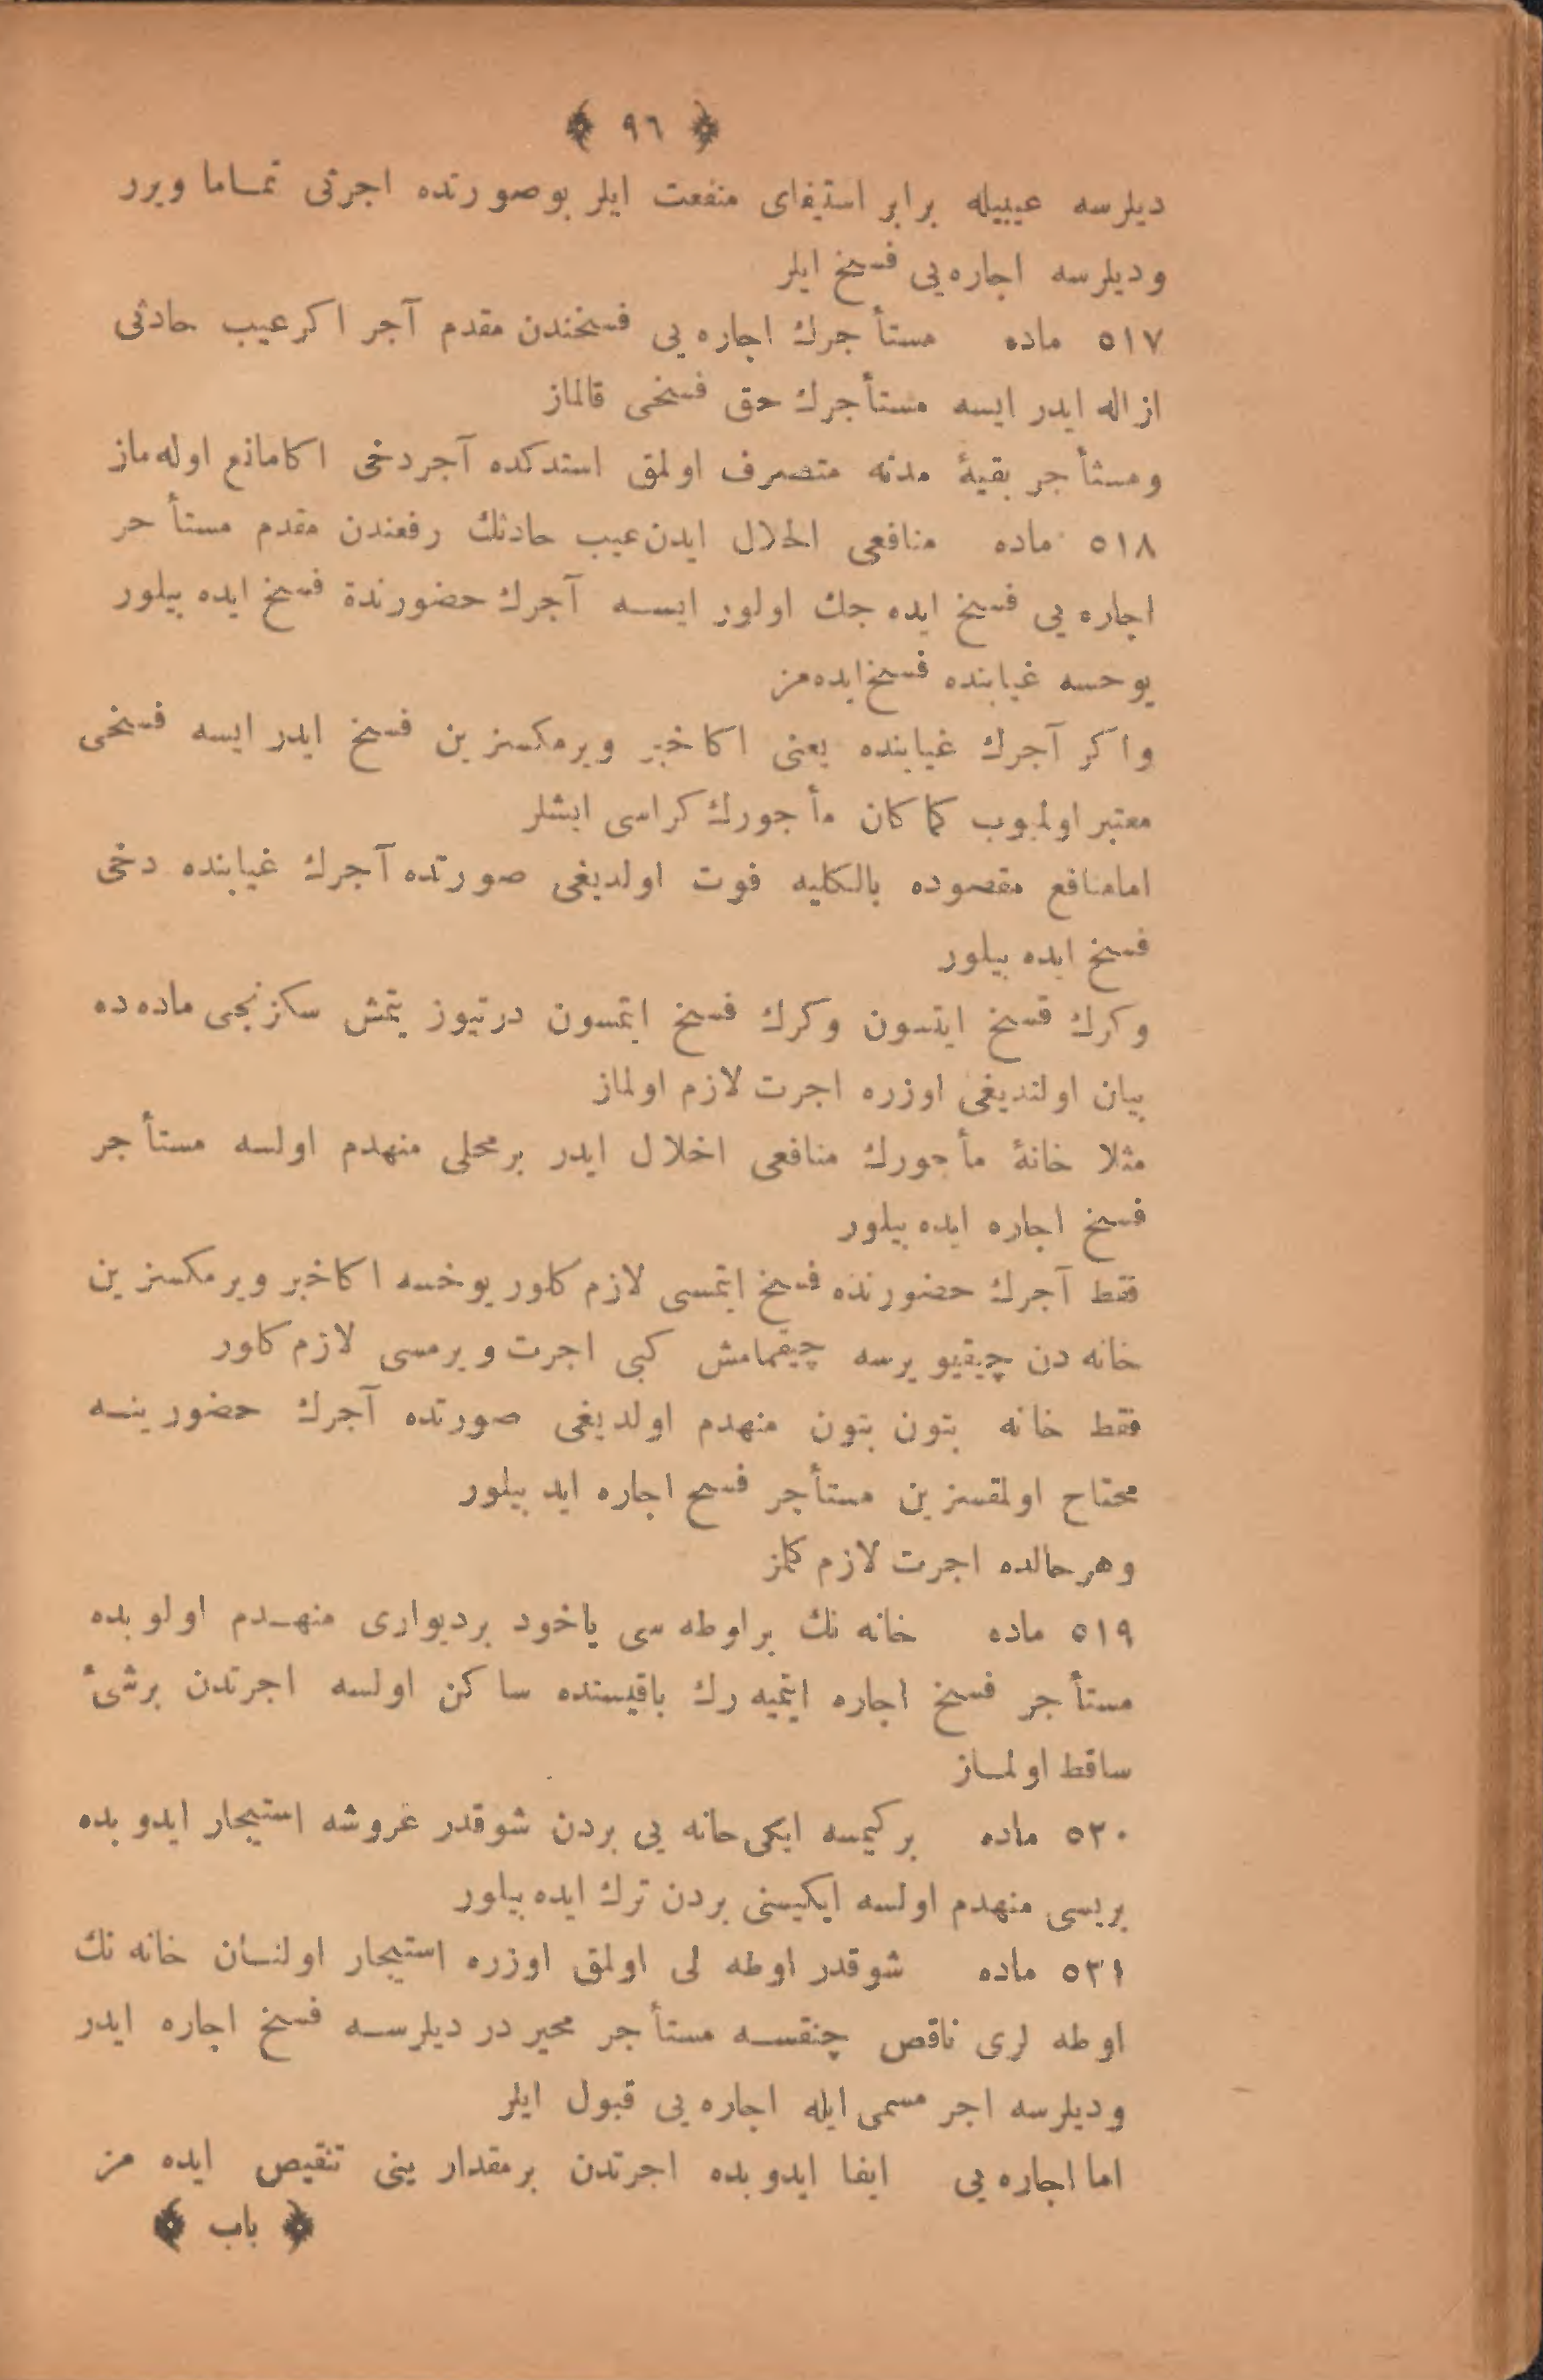 ﴿ ٩٦ ﴾
دیلرسه عیبیله برابر استیفای منفعت ایلر بوصورتده اجرتی تماما ویرر
ودیلرسه اجاره‌یی فسخ ایلر
٥١٧ ماده مستأجرك اجاره یی فسخندن مقدم آجر اكرعیب حادثی
ازاله ایدر ایسه مستأجرك حق فسخی قالماز
ومستأجر بقیهٔ مدته متصرف اولمق استدكده آجردخی اكامانع اوله‌ماز
٥١٨ ماده منافعی اخلال ایدن عیب حادثك رفعندن مقدم مستأحر
اجاره یی فسخ ایده جك اولور ایسه آجرك حضورندة فسخ ایده بیلور
یوحسه غیابنده فسخ ایده‌مز
واكر آجرك غیابنده یعنی اكا خبر ویرمكسزین فسخ ایدر ایسه فسخی
معتبر اولمیوب كماكان مأجورك كراسی ایشلر
امامنافع مقصوده بالكلیه فوت اولدیغی صورتده آجرك غیابنده دخی
فسخ ایده بیلور
وكرك فسخ ایتسون وكرك فسخ ایتمسون درتیوز یتمش سكزنجی ماده‌ده
بیان اولندیغی اوزره اجرت لازم اولماز
مثلا خانهٔ مأجورك منافعی اخلال ایدر برمحلی منهدم اولسه مستأجر
فسخ اجاره ایده بیلور
فقط آجرك حضورنده فسخ ایتمسی لازم كلور یوخسه اكاخبر ویرمكسزین
خانه دن چیقیویرسه چیقمامش كبی اجرت ویرمسی لازم كلور
فقط خانه بتون بتون منهدم اولدیغی صورتده آجرك حضورینه
محتاح اولمقسزین مستأجر فسح اجاره اید بیلور
وهرحالده اجرت لازم كلمز
٥١٩ ماده خانه نك براوطه سی یاخود بردیواری منهدم اولوبده
مستأجر فسخ اجاره ایتمیه رك باقیسنده ساكن اولسه اجرتدن برشیٔ
ساقط اولماز
٥٢٠ ماده بركیمسه ایكی حانه یی بردن شوقدر غروشه استیجار ایدوبده
بریسی منهدم اولسه ایكیسنی بردن ترك ایده بیلور
٥٢١ ماده شوقدر اوطه لی اولمق اوزره استیجار اولنان خانه نك
اوطه لری ناقص چنقسه مستأجر محیر در دیلرسه فسخ اجاره ایدر
ودیلرسه اجر مسمی ایله اجاره یی قبول ایلر
اما اجاره یی ایفا ایدوبده اجرتدن برمقدارینی تنقیص ایده مز
﴿ باب ﴾